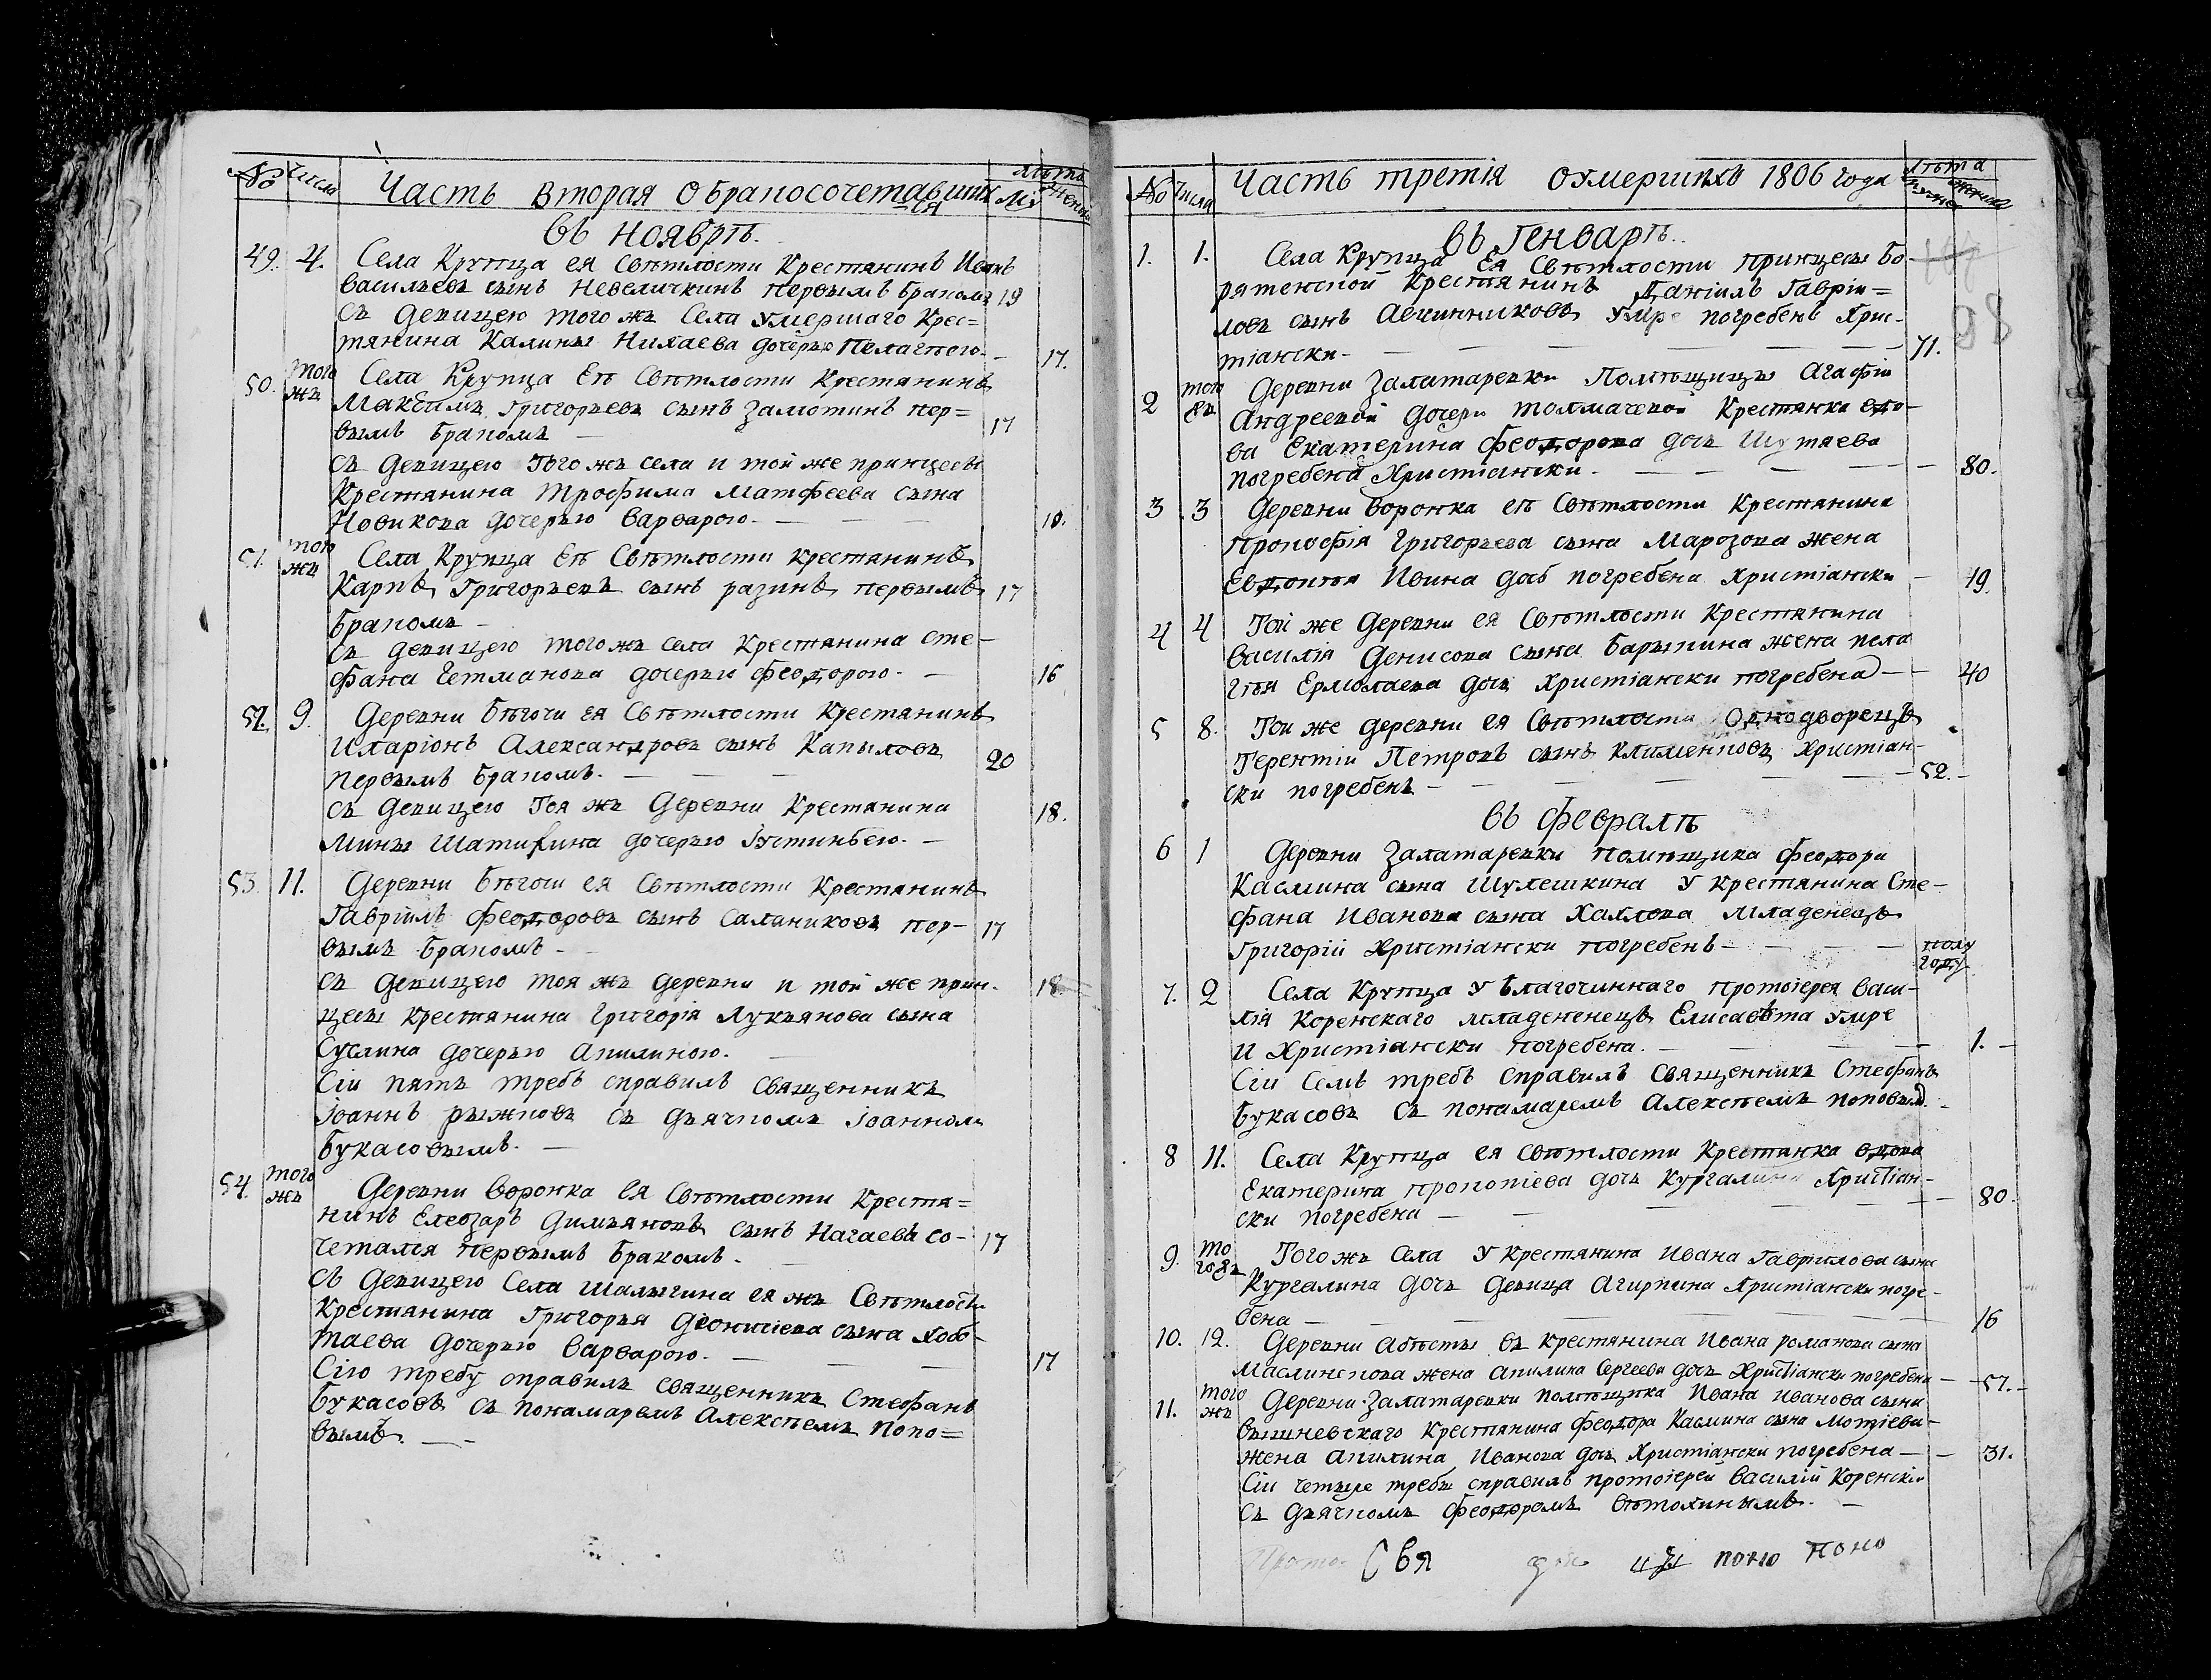 № Числа Часть вторая о браносочетавшихся Лѣта Му женс
въ ноябрѣ.
49. 4. Села Крупца ея свѣтлости крестянинъ Иванъ
васильевъ сынъ Невеличкинъ первымъ бракомъ 19
съ девицею того жъ села умершаго крес=
тянина Калины Нихаева дочерью Пелагѣею. 17.
50. того жъ Села Крупца еѣ свѣтлости крестянинъ
Максимъ Григорьевъ сынъ Замотинъ пер=
вымъ бракомъ — 17
съ девицею того жъ села и той же принцесы
крестянина Трофима Матфеева сына
Новикова дочерью варварою. — 18.
51. того жъ Села Крупца еѣ свѣтлости крестянинъ
Карпъ Григорьевъ сынъ разинъ первымъ 17
бракомъ —
съ девицею того жъ села крестянина сте-
фана Гетманова дочерью феодорою. — 16
52. 9. Деревни Бѣгочи ея свѣтлости крестянинъ
Иларіонъ Александровъ сынъ Капыловъ 20
первымъ бракомъ. —
съ девицею тоя жъ деревни крестянина 18.
мины дочерью Іустинѣею. —
53. 11. Деревни Бѣгочи ея свѣтлости крестянинъ
Гавріилъ феодоровъ сынъ Саланиковъ пер- 17
вымъ бракомъ —
съ девицею тоя жъ деревни и той же прин- 18
цесы крестянина Григорія Лукьянова сына
Суслина дочерью Апилиною.
Сіи пять требъ справилъ священникъ
Іоаннъ рыжковъ съ дьячкомъ Іоанномъ
Букасовымъ. —
54. того жъ Деревни воронка ея свѣтлости крестя=
нинъ Елеозаръ Димьяновъ сынъ Нагаевъ со- 17
четался первымъ бракомъ. —
съ девицею села Шалыгина ея жъ свѣтлости
крестянина Григорья Діонисіева сына Хобо-
таева дочерью варварою. — 17
Сію требу справилъ священникъ Стефанъ
Букасовъ съ понамаремъ Алексѣемъ Попо=
вымъ. —
№ Числа Часть третія о умершихъ 1806 года Лѣта мужес женска
въ Генварѣ.
1. 1. Села Крупца ея свѣтлости принцесы Бо-
рятенской крестянинъ Даніилъ Гаврiи=
ловъ сынъ Авчинниковъ умре погребенъ Хрис-
тіански — 71.
88
2 того жъ Деревни Залатаревки Помѣщицы Агафіи
Андреевой дочери толмачевой крестянка вдо-
ва Екатерина феодорова дочь Шутяева
погребена Христіански. — 80.
3 3 Деревни воронка еѣ свѣтлости крестянина
Прокофія Григорьева сына Марозова жена
Евдокія Ивина дочь погребена Христіански — 19.
4 4 Той же деревни ея свѣтлости крестянина
василія Денисова сына Барыпина жена пела
гѣя Ермолаева дочь Христіански погребена — 40
5 8. Той же деревни ея свѣтлости Однодворецъ
Терентій Петровъ сынъ климентовъ Христіан-
ски погребенъ — 52.
въ февралѣ
6 1 Деревни Залатаревки помѣщика феодора
Касмина сына Шулешкина у крестянина Сте-
фана Иванова сына Хахлова младенецъ
Григорій Христіански погребенъ — полу году
7. 2 Села Крупца у благочиннаго протоіерея васи-
лія Коренскаго младененецъ Елисавета умре
и Христіански погребена. — 1.
Сіи семь требъ справилъ священникъ Стефанъ
Букасовъ съ понамаремъ Алексѣемъ поповым.
8 11. Села Крупца ея свѣтлости крестянка вдова
Екатерина прокопіева дочь Кургалина Христіан-
ски погребена — 80.
9. то гожъ Того жъ села у крестянина Ивана Гавріилова сына
Кургалина дочь девица Агирпина Христіански погре-
бена — 16
10. 12. Деревни Абѣсты въ крестянина Ивана романова сына
Маслинскова жена Апилина Сергеева дочь Христіански погребена — 57.
11. того жъ Деревни Залатаревки помѣщика Ивана Иванова сына
вышневскаго крестянина феодора Касмина сына
жена Апилина Иванова дочь Христіански погребена — 31.
Сіи четыре требы справилъ протоіерей василій Коренскій
съ дьячкомъ феодоромъ вѣтохинымъ. —
Прото Свя поно поно